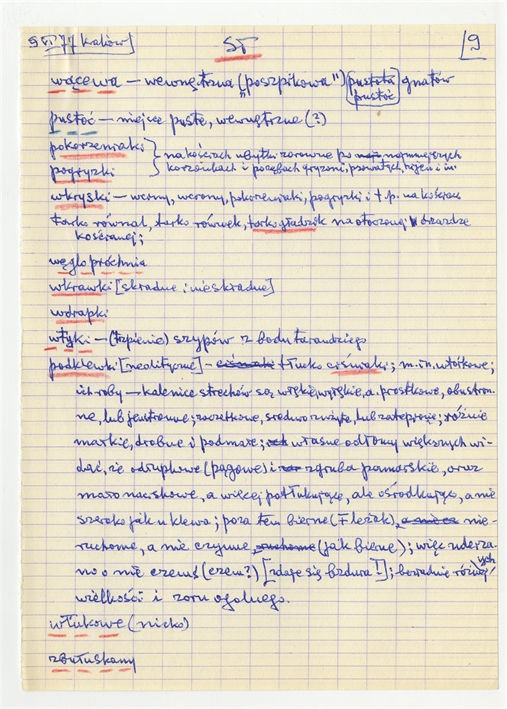 9 VI 77 Kraków] ST [9
wącewa — wewnętrzna ("poszpikowa") [pustota gnatów
pustoć]
pustoć — miejsce puste, wewnętrzne (?)
pokorzeniaki } na kościach ubytki zarowne po najmniejszych
pogryzki } korzonkach i po zębach gryzoni, psowatych, hijen i in.
wkryski — wcrny, wcrony, pokorzeniaki, pogryzki i t.p. na kościach
tarko równal, tarko równek, tarko gładzik na otoczonej drzazdze
kościanej;
węglo próchnia
wkrawki [składne i nieskładne]
wdrapki
wtyki — (trzpienie) szypów z bodu tarandziego
podklewki [neolityczne] — tłuko ciśniaki; m.in. wtórkowe;
ich roby — kalenice strzechów są większe, a. prostkowe, obustron-
ne, lub jednronne; różnie
miałkie, drobne i podmałe; własne odłomy większych wi-
dać, że odrupkowe (pagowe) i zgruba pamarskie, oraz
mało naciskowe, a więcej potłukujące, ale ośrodkujące, a nie
szeroko jak u klewa; poza tem bierne (= leżak), nie-
ruchome, a nie czynne (jak bierne); więc uderza-
no o nie czemś (czem?) [zdaje się bzdura!]; bezładnie różnych
wielkości i zoru ogólnego.
włukowe (nicko)
zbułuskany